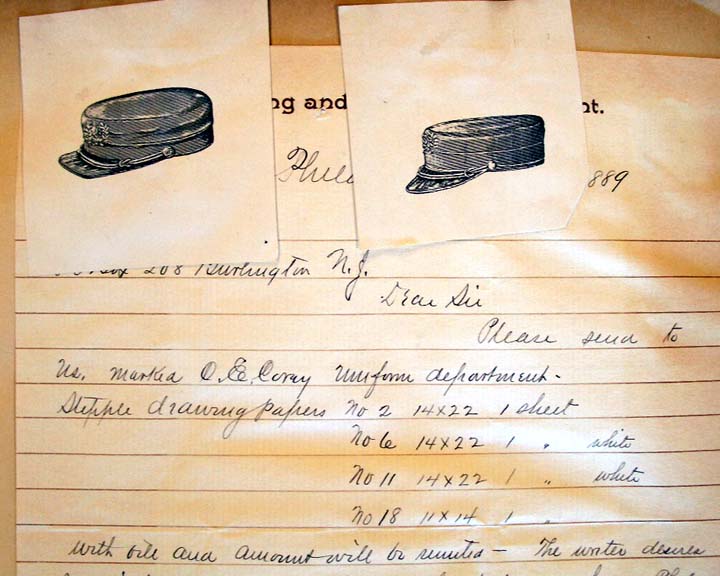 ng and nt.
Phil 889
Box 208 Burlington N.J.
Dear Sir
Please send to
us. marked C. E. Corey Uniform department-
Stipple drawing papers No 2 14x22 1 sheet
No 6 14x22 1 " white
No 11 14x22 1 " white
No 18 11x14 1 "
with bill and amount will be remitted - The writer desires